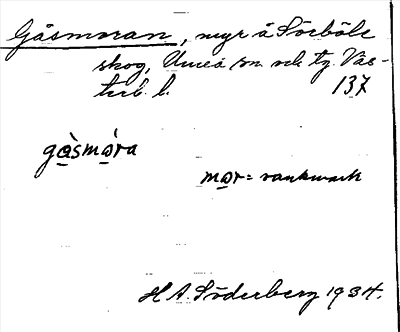 Gåsmoran, myr å Sörböle
skog, Umeå sn. och tg. Väs-
terb. l. 137
gàsmóra
mor = vankmark
H A. Söderberg 1934.